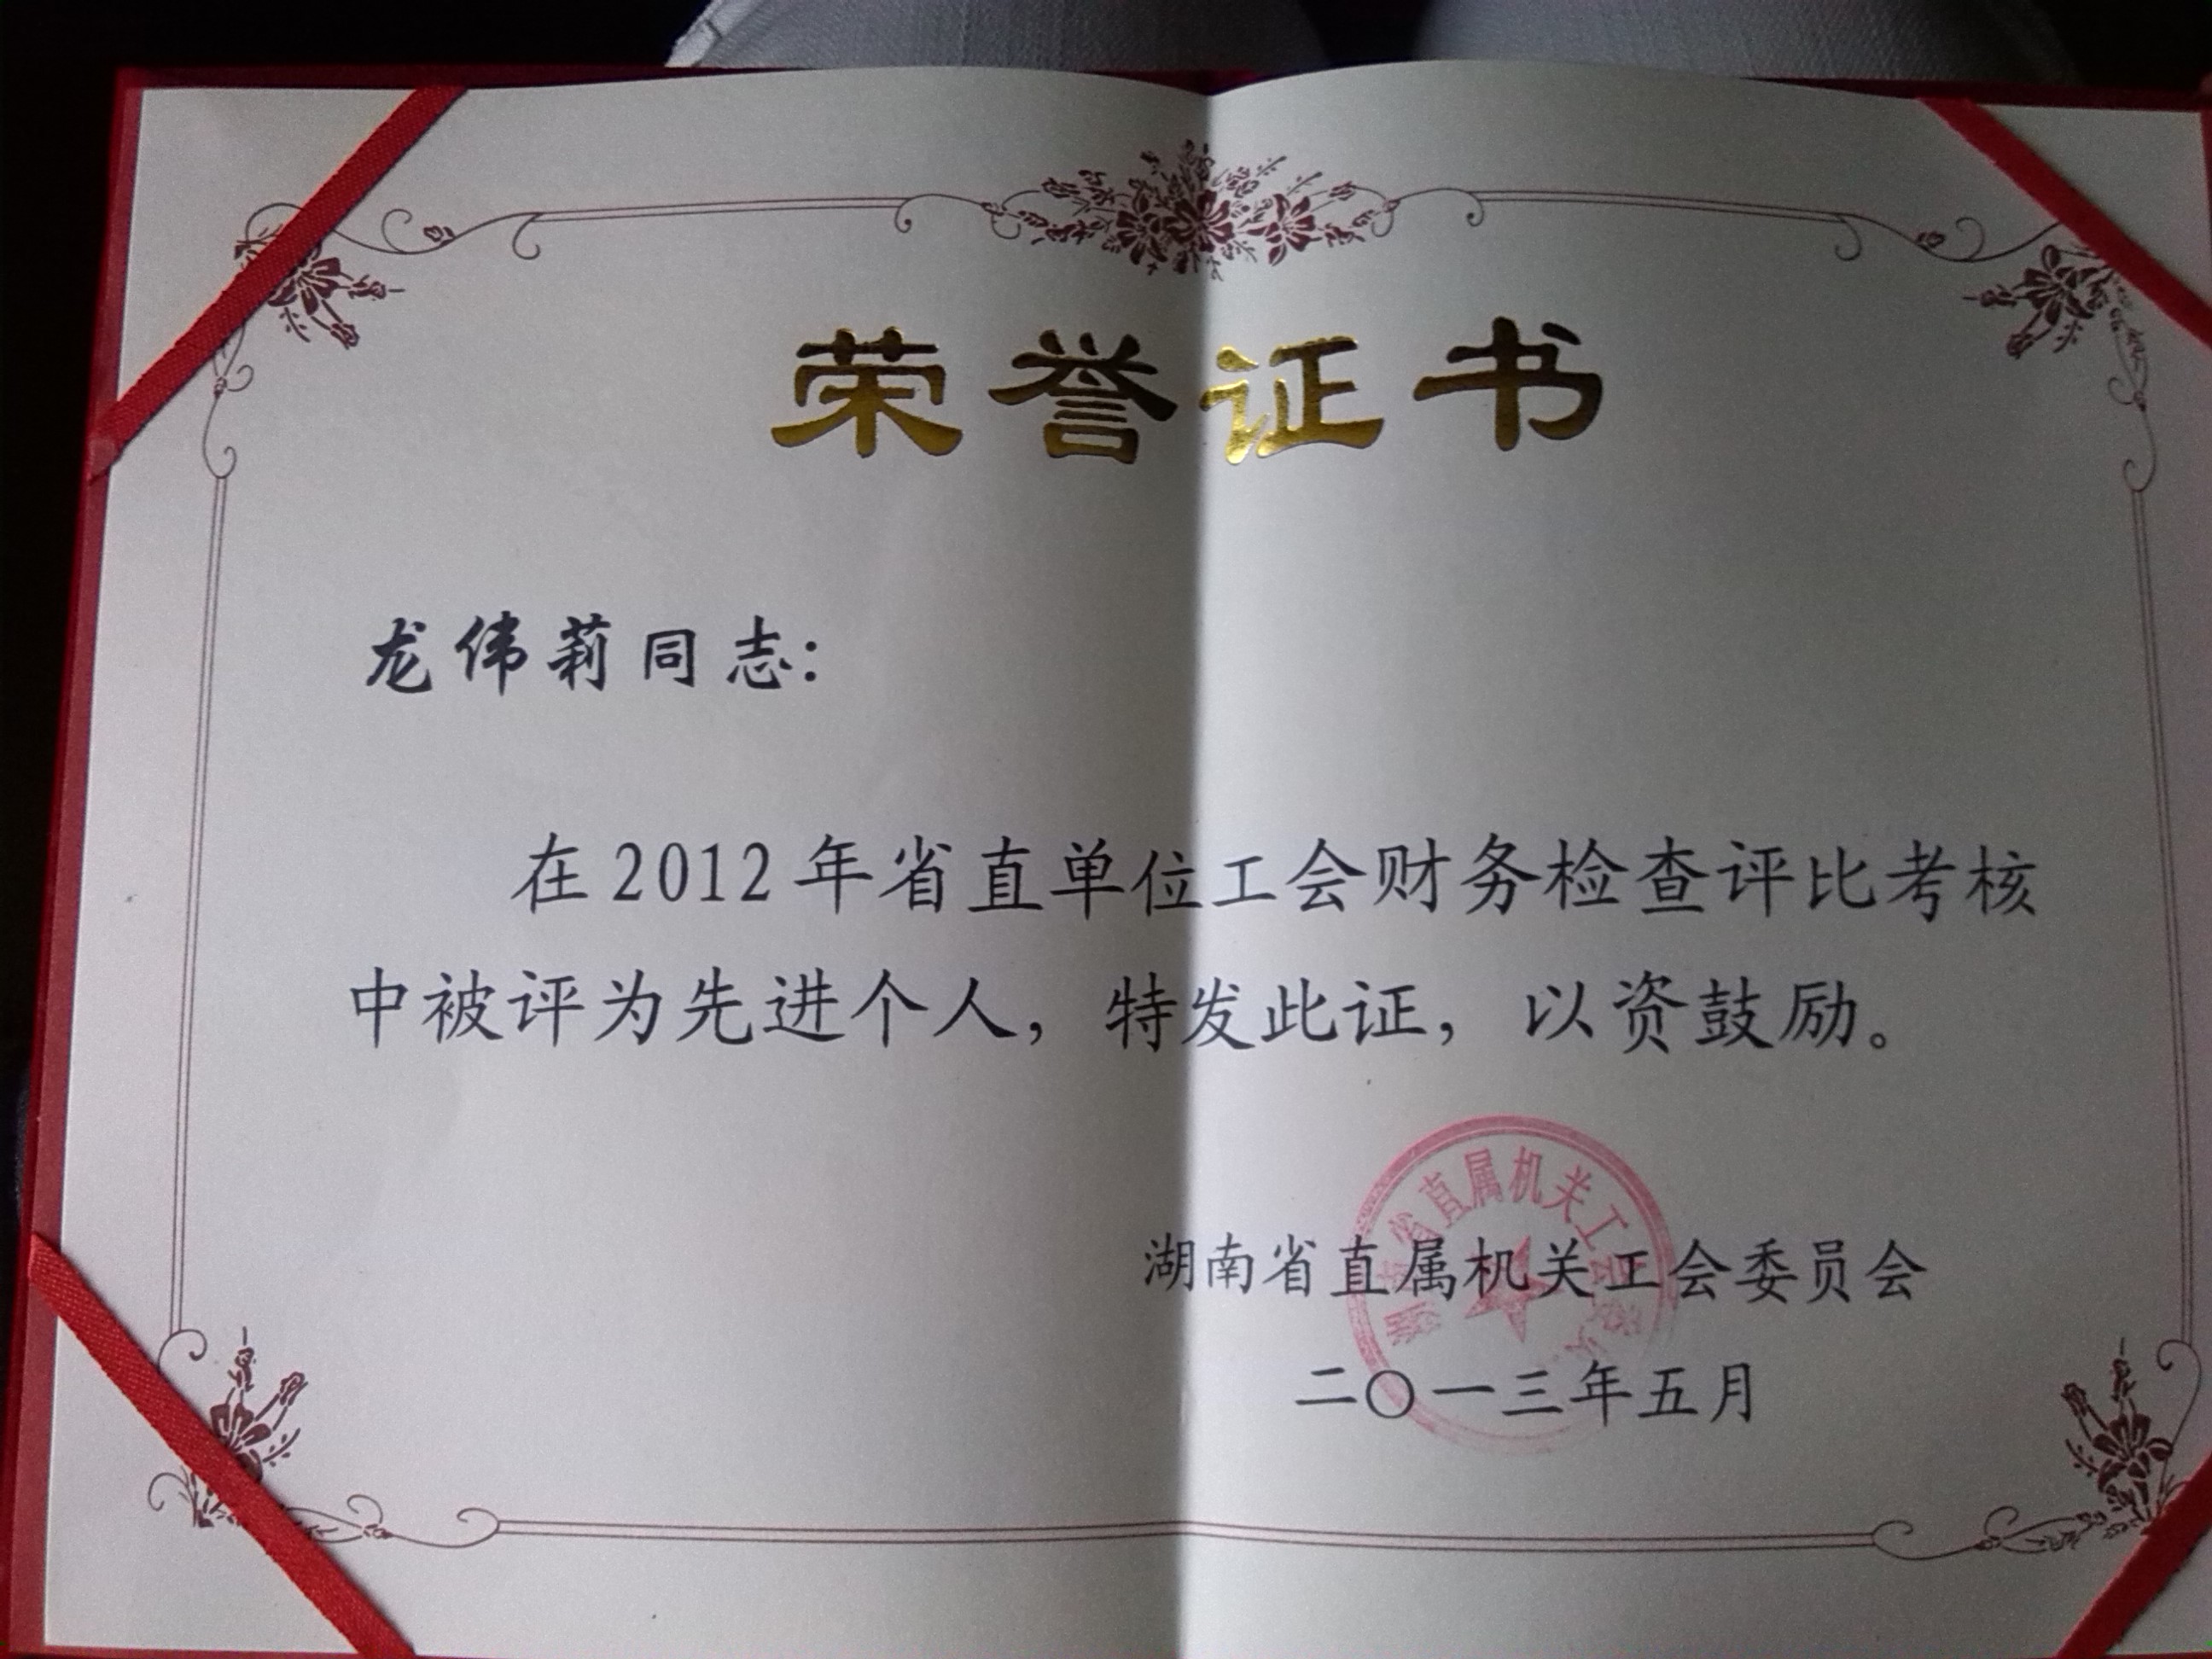 荣誉证书
龙伟莉同志：
在2012年省直单位工会财务检查评比考核
中被评为先进个人，特发此证，以资鼓励。
湖南省直属机关工会委员会
二〇一三年五月
省直属机关工